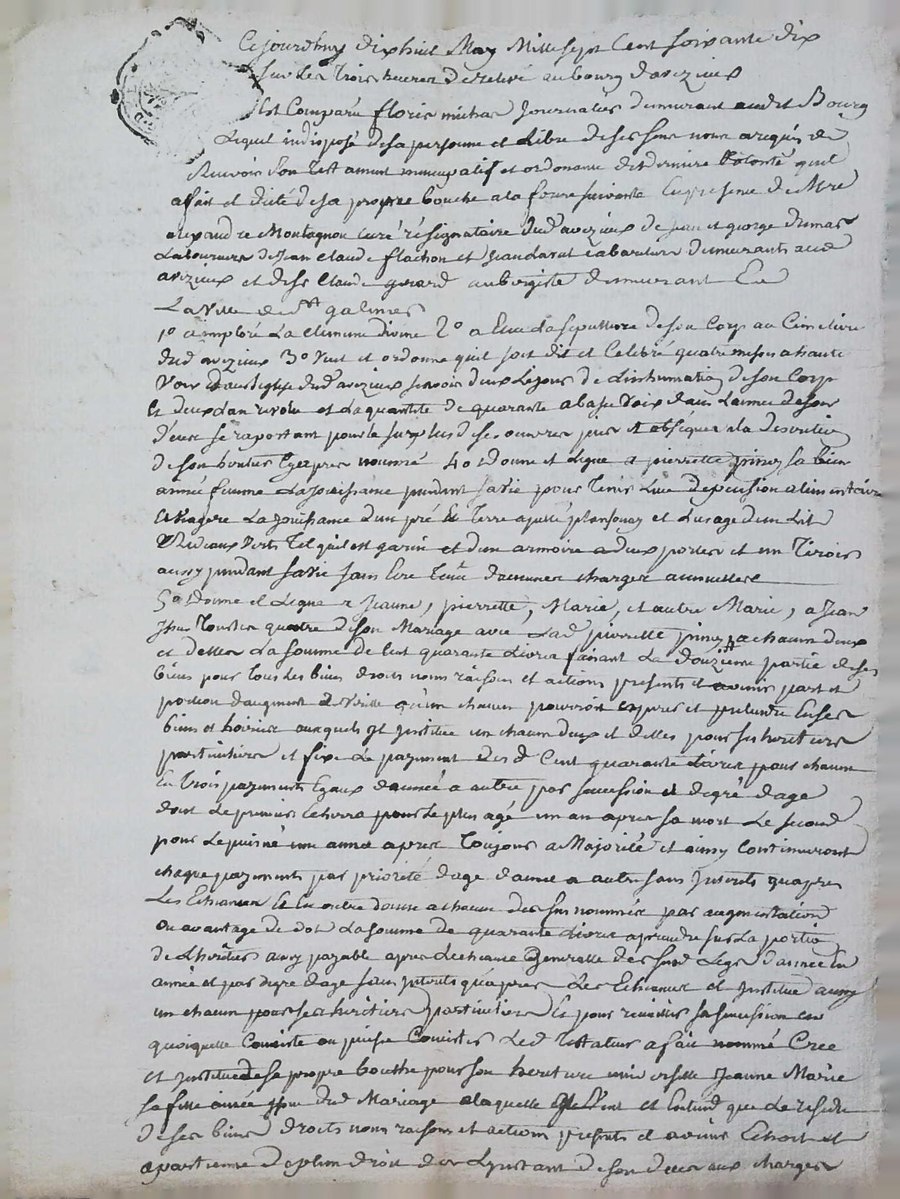 Cejourdhuy dixhuit May Mille sept Cent soixante dix
sur les trois heures de relevé au bourg daveizieux
Est Comparu floris michas Journalier demeurant audit Bourg
Lequel indisposé de sa personne et Libre de ses sens nous a requis de
Recevoir son testament nuncupatif et ordonance de derniere volonté quil
a fait et dicté de sa propre bouche a la forme suivante En presence de Mre
Montagnon curé résignataire dud aveizieux de Jean et george dumas
Laboureurs de Jean Claude flachon et cabaretier demeurants aud
aveizieux et de Sr Claude gerard aubergiste demeurant En
La Ville de St galmier
1o a imploré La Clemence divine 2o a Elu La sepulture de son Corp au Cimetiere
dud aveizieux 3o Veut et ordonne quil soit dit et Celebré quatre messes a haute
Voix dans leglise dud aveizieux scavoir deux Le jour de Linhumation de son Corp
Et deux dan revolu et La quantité de quarante a basse Voix dans Lannee de son
deces se raportant pour le surplus de ses œuvres pies et obséques a la discretion
de son heritier Cy apres nommé 4o donne et Legue a pierrette sa bien
aimée femme La Jouissance pendant sa vie pour tenir Lieu de pension alimentaire
et viagere La Jouissance dun pré et Terre apellé et Lusage dun Lit
Rideaux Verts tel quil est garni et dun armoire a deux portes et un tiroir
aussy pendant sa vie sans Etre tenue daucunes charges annuelles
5o donne et Legue a Jeanne, pierrette, Marie, et autre Marie, a Jean
tous de son Mariage avec Lad pierrette a chacun deux
et delles La somme de Cent quarante Livres faisant La douzieme partie de ses
biens pour tous Les biens droits noms raisons et actions presents et avenir part et
portion daugment de Virille quun chacun pourroit esperer et pretendre En ses
biens et hoirie auxquels Il Institue un chacun deux et delles pour ses heritiers
particuliers et fixe Le payement desd Cent quarante Livres pour chacun
En trois payements Egaux dannée a autre par succession et degré dage
dont Le premier Echerra pour Le plus agé un an apres sa mort Le second
pour Le puisné une année apres Toujours a Majorité et ainsy Continueront
chaque payements par priorité dage dannée a autre sans Interets quapres
Les Echeances Et En outre donne a chacun des sus nommés par augmentation
ou avantage de dot La somme de quarante Livres a prendre sur La portion
de Lheritier aussy payable apres Lecheance Generalle des susd Legs dannée En
année et par degré dage sans Interets quapres Les Echeances et Institue aussy
un chacun pour ses heritiers particuliers Et pour recueillir sa succession en
quoiquelle Consiste ou puisse Consister Led testateur a fait nommé Créé
et Institué de sa propre bouche pour son heritiere universelle Jeanne Marie
sa fille ainée dud Mariage a laquelle Il Veut et Entend que Le residu
de ses biens droits noms raisons et actions presents et avenir Echoit et
apartienne de plein droit des Lynstant de son deces aux charges